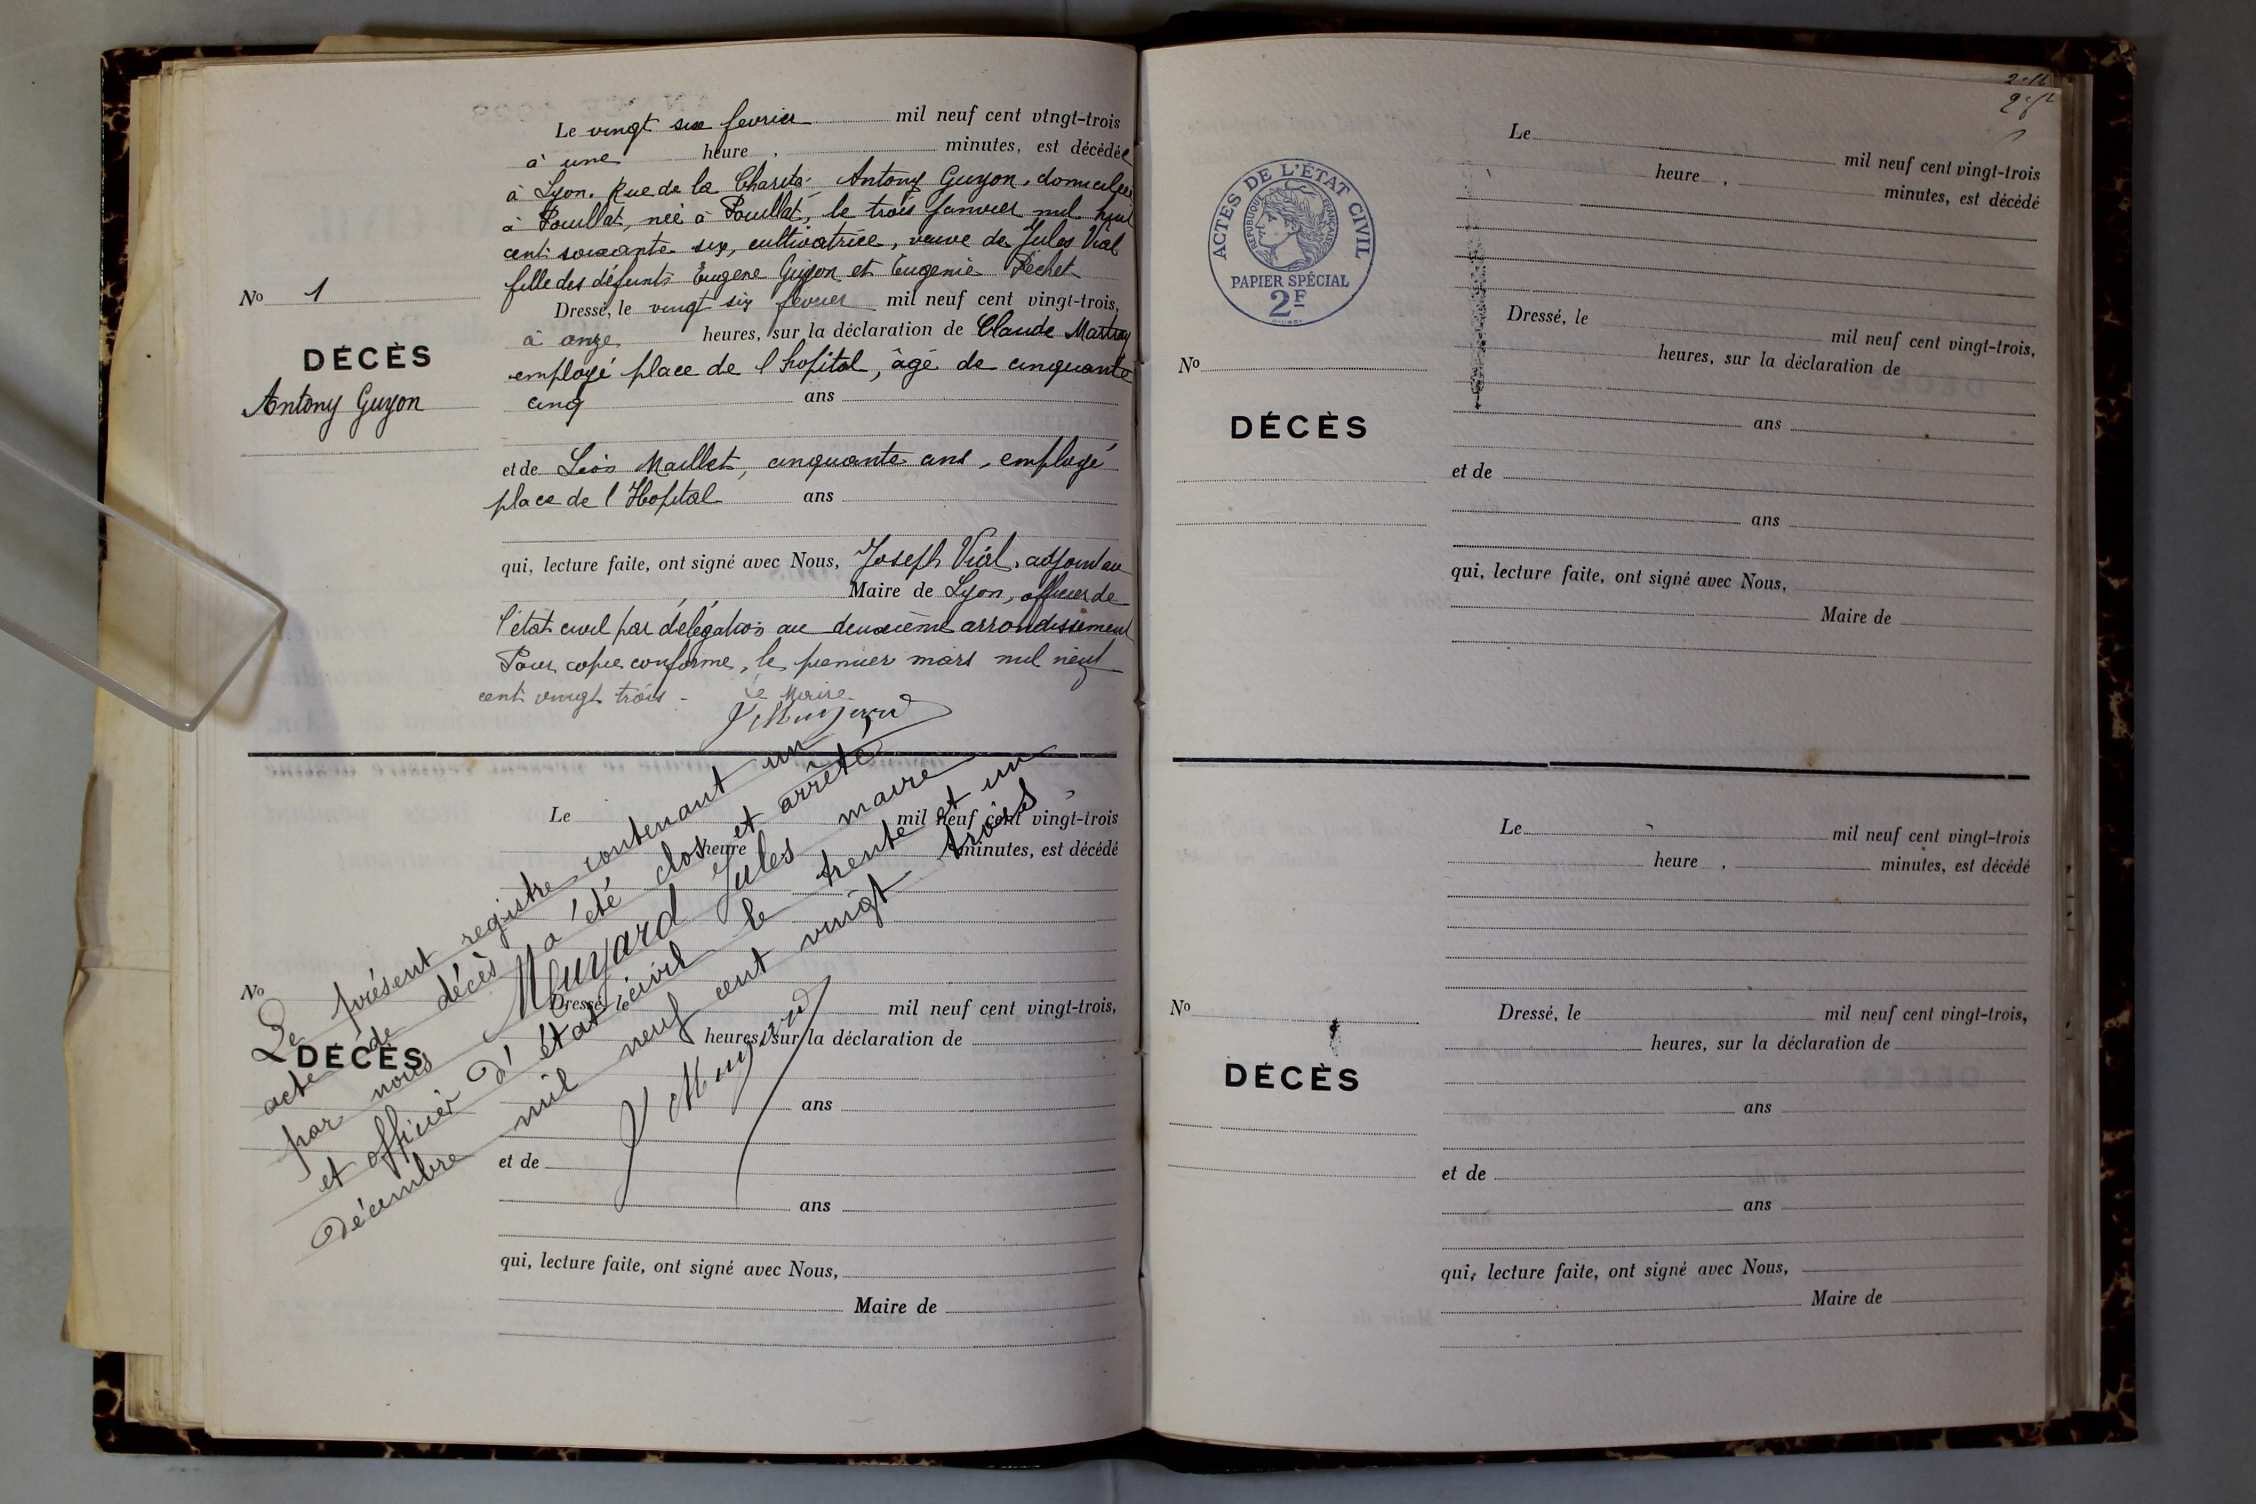 Le vingt six fevrier mil neuf cent vingt-trois
à une heure, minutes, est décédée
à Lyon. Rue de la Charité. Antony Guyon, domiciliée
à Pouillat, née à Pouillat, le trois Janvier mil huit
cent soixante six, cultivatrice, veuve de Jules Vial
fille des défunts Eugene Guyon et Eugenie Pechet
No 1
DÉCÈS
Antony Guyon
Dressé, le vingt six fevrier mil neuf cent vingt-trois,
à onze heures, sur la déclaration de Claude
employé place de l'hopital, âgé de cinquante
cinq ans
et de Léon Maillet, cinquante ans, employé
place de l'Hopital ans
qui, lecture faite, ont signé avec Nous, Joseph Vial, adjoint au
Maire de Lyon, officier de
l'état civil par délégation au deuxième arrondissement
Pour copie conforme, le premier mars mil neuf
cent vingt trois - Le Maire
J Muyard
Le présent registre contenant un
acte de décès a été clos et arrêté
par nous Muyard Jules maire
et officier d'état civil le trente et un
décembre mil neuf cent vingt trois
J Muyard
Le mil neuf cent vingt-trois
heure minutes, est décédé
No
DÉCÈS
Dressé, le mil neuf cent vingt-trois,
heures, sur la déclaration de
ans
et de
ans
qui, lecture faite, ont signé avec Nous,
Maire de
ACTES DE L'ÉTAT CIVIL
RÉPUBLIQUE FRANÇAISE
PAPIER SPÉCIAL
2F
Le mil neuf cent vingt-trois
heure, minutes, est décédé
No
DÉCÈS
Dressé, le mil neuf cent vingt-trois,
heures, sur la déclaration de
ans
et de
ans
qui, lecture faite, ont signé avec Nous,
Maire de
Le mil neuf cent vingt-trois
heure, minutes, est décédé
No
DÉCÈS
Dressé, le mil neuf cent vingt-trois,
heures, sur la déclaration de
ans
et de
ans
qui, lecture faite, ont signé avec Nous,
Maire de